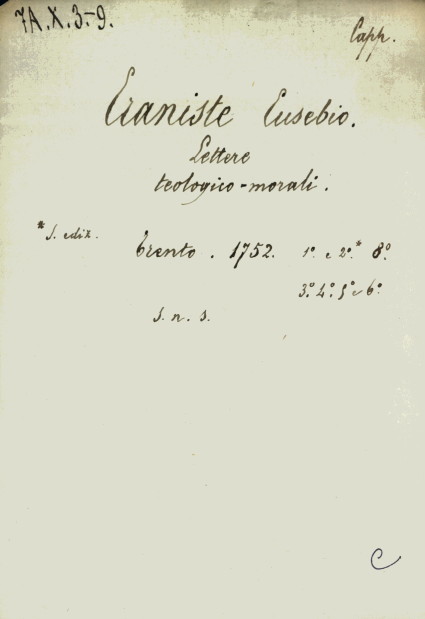 7A.X.3-9.
Capp.
Eraniste Eusebio.
Lettere
teologico-morali.
*S. ediz.
Trento. 1752. 1º. e 2º.* 8º.
3º. 4º. 5º e 6º.
S. n. s.
C